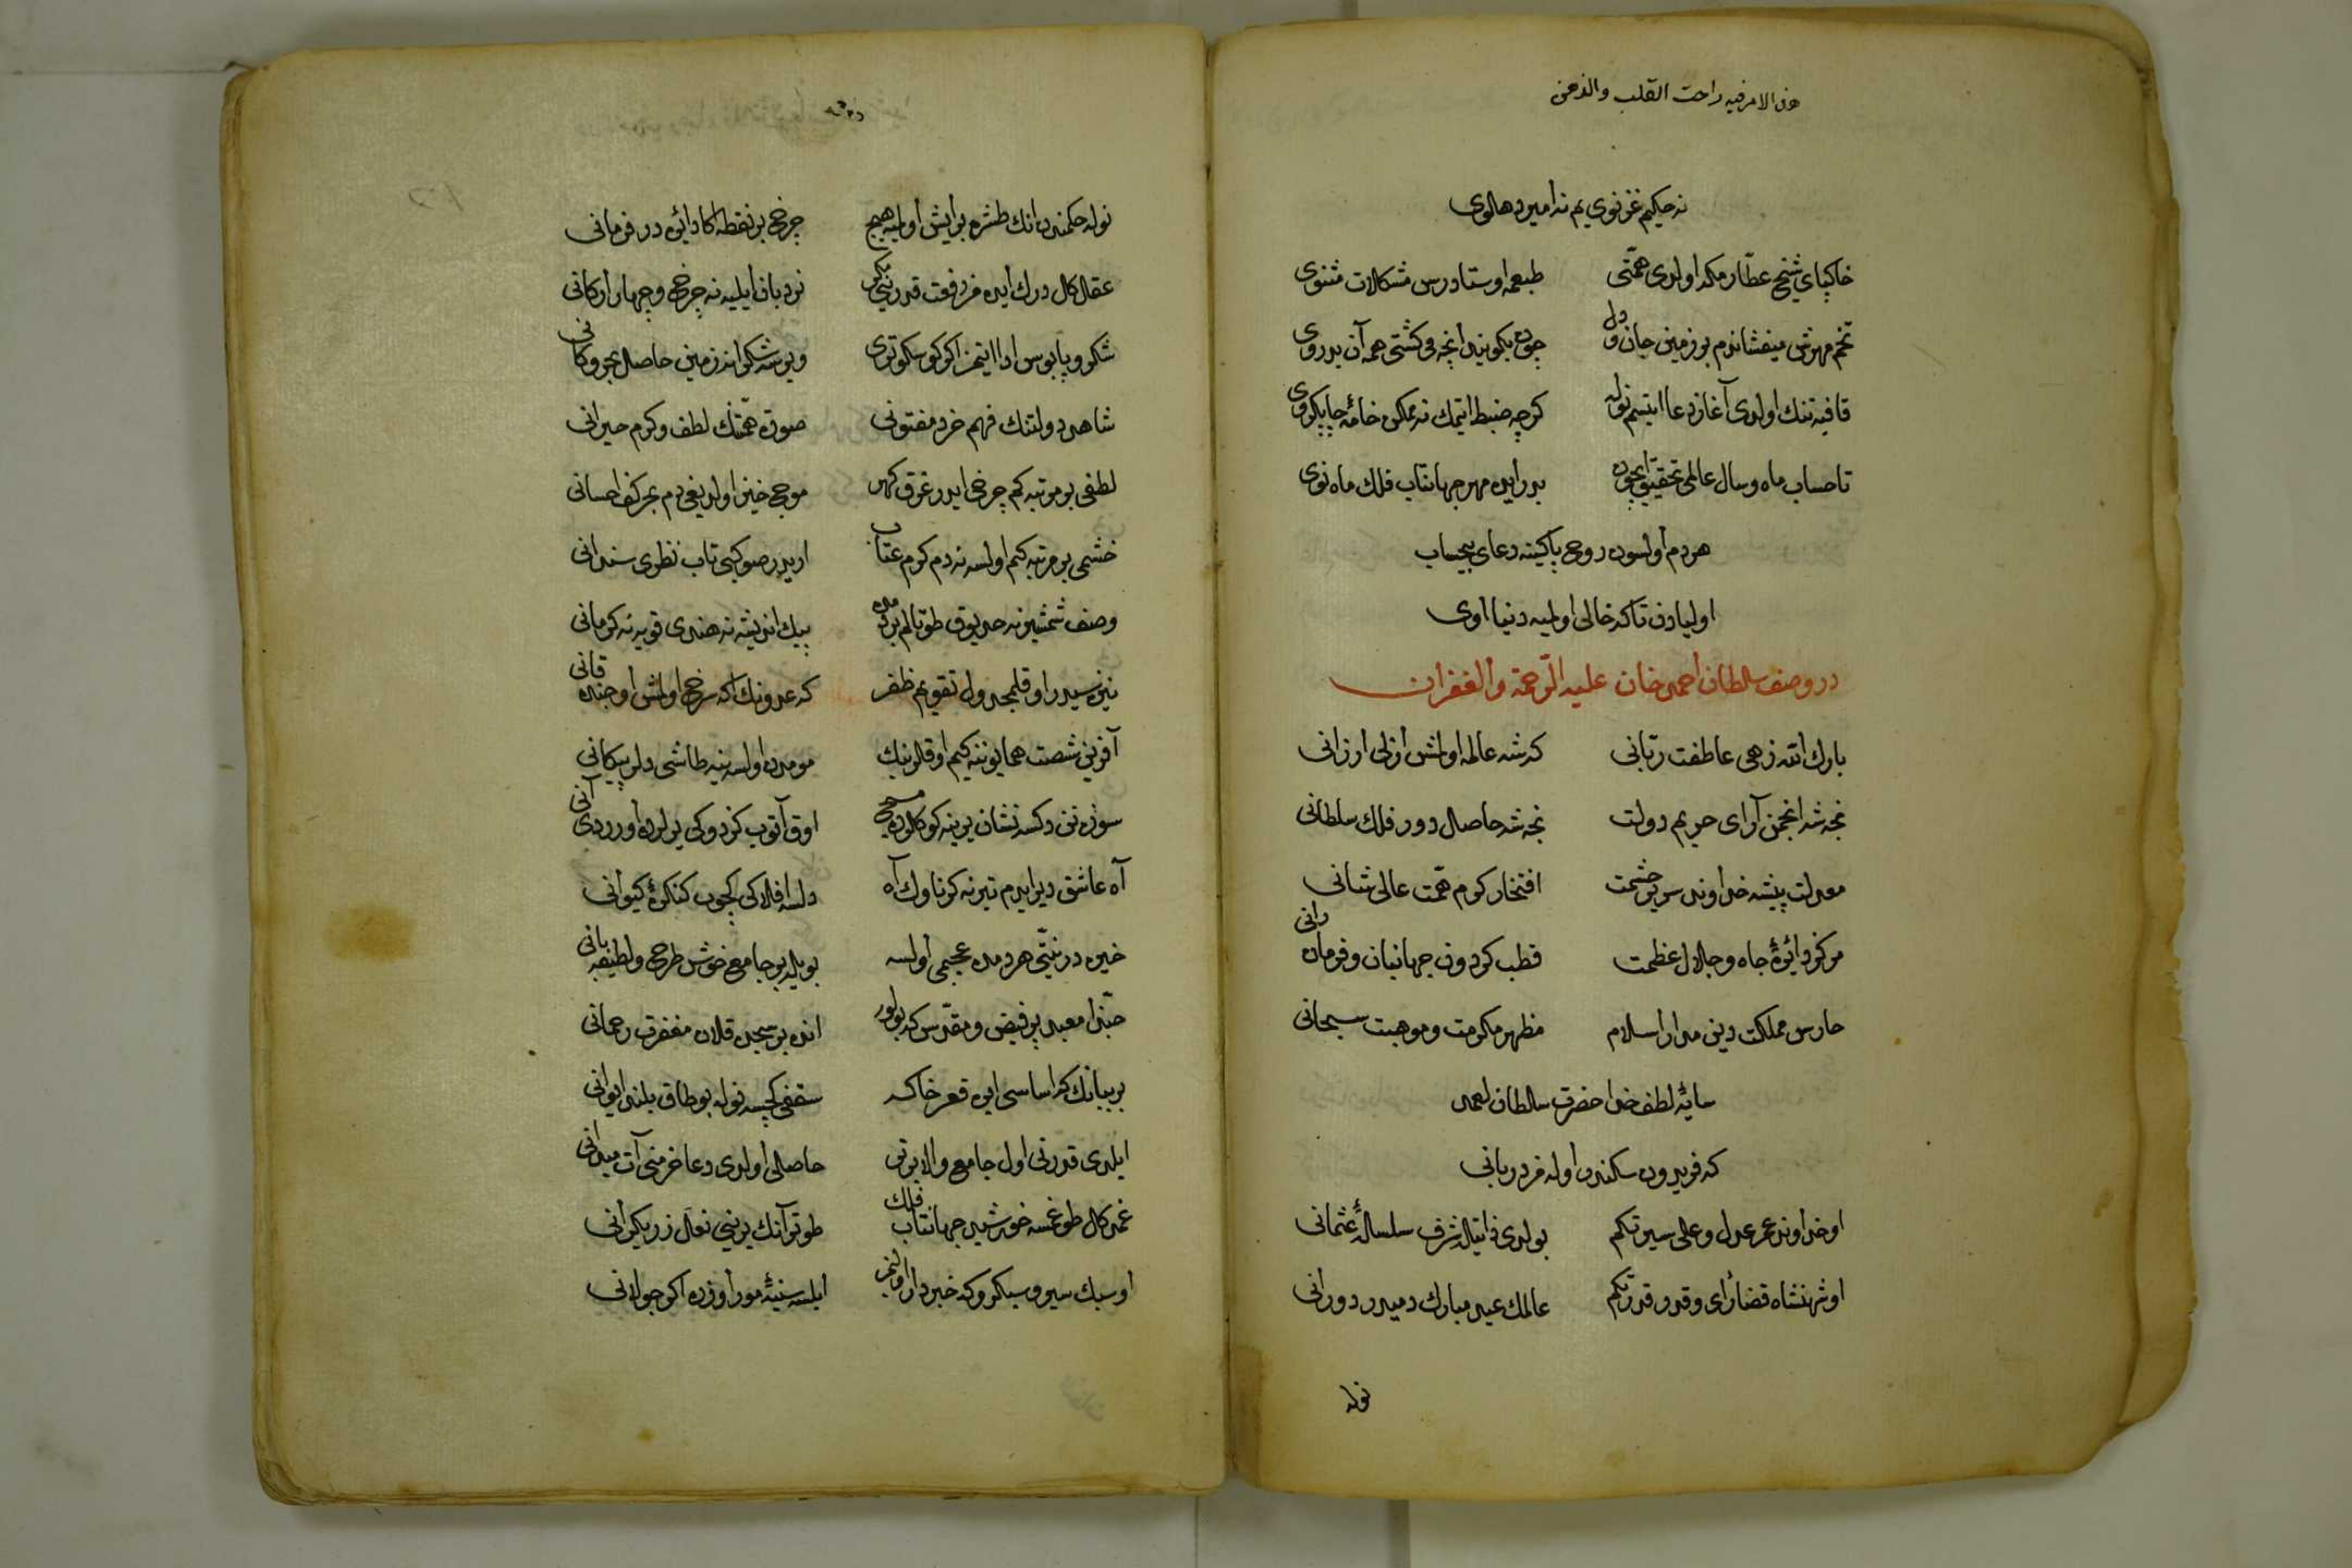 هذه الامر فيه راحت القلب والذهن
نه حكيم غزنوی يم نه امير دهلوی
خاكپای شيخ عطار مكه اولدی همتی طبعمه اوستاد درس مشكلات مثنوی
تخم مهرش ميفشاندم بو زمين جان و دل چون بكويند انچه می كشتی همه آن بدروی
قافيه تنك اولدی آغاز دعا ايتسم نوله كرچه ضبط ايتمك نه ممكن خامهٔ چاپكروی
تا حساب ماه وسال عالمی تحقيق ايچون بدر ايده مهر جهانتاب فلك ماه نوی
هر دم اولسون روح پاكينه دعای بيحساب
اوليادن تا كه خالی اولميه دنيا اوی
در وصف سلطان احمد خان عليه الرحمة والغفران
بارك الله زهی عاطفت ربانی كه شه عالمه اولمش ازلی ارزانی
نجه شه انجمن آرای حريم دولت نجه شه حاصل دور فلك سلطانی
معدلت پيشه خداوند سرير حشمت افتخار كرم همت عالی شانی
مركز دائرهٔ جاه وجلال عظمت قطب كردون جهانبان وفرمان رانی
حارس مملكت دين مدار اسلام مظهر مكرمت وموهبت سبحانی
سايهٔ لطف خدا حضرت سلطان احمد
كه فريدون سكندر اوله فر دربانی
او خداوند عمر عدل وعلی سيرتكم بولدی ذاتيله شرف سلسلهٔ عثمانی
او شهنشاه قضا رای وقدر قدرتكم عالمك عيد مبارك دميدر دورانی
نوله
نوله حكمندن انك طشره بر ايش اولميه هيچ چرخ بر نقطه اكا دائره در فرمانی
عقل كل درك ايده مز رفعت قدرينی مكر نردبان ايليه نه چرخ وچهار اركانی
شكر و پابوس ادا ايتمز اكر كوسكوتری ويرسه شكرانه زمين حاصل بحر وكانی
شاهد دولتنك فهم خرد مفتونی صورت همتنك لطف وكرم حيرانی
لطفی بر مرتبه كم چرخی ايدر غرق كهر موج خيز اولديغی دم بحر كف احسانی
خشمی بر مرتبه كم اولسه نه دم كرم عتاب اريدر صو كبی تاب نظری سندانی
وصف شمشيرنه حد يوق طوتالم بر دمده پيك انديشه نه هندی قويه نه كرمانی
نيزه سيدر او قلم جدول تقويم ظفر كه عدونك اكه سرخ اولمش اوجنده قانی
آفرين شصت همايوننه كيم اوقلرنك مومدن اولسه ينه طاشی دلر پيكانی
آه عاشق دير ايدم تيرنه كر ناوك آه دلسه افلاكی كچوب كنكرهٔ كيوانی
خيره در نيتی هر دمده عجبمی اولسه بويله بر جامع خوش طرح ولطيفه بانی
حبذا معبد پر فيض ومقدس كه بولور انده بر سجده قلان مغفرت رحمانی
بر بنانك كه اساسی ايره قعر خاكه سقفی كچسه نوله بو طاق بلند ايوانی
ايلدی قدرتی اول جامع والا يرنی حاصلی اولدی دعا خرمنی آت ميدانی
عمد كال طوغسه خورشيد جهانتاب فلك طوتر آنك يرينی نعل زر يكرانی
او سبك سير وسبكرو كه خبردار اولمز ايلسه سينهٔ مور اوزره اكر جولانی